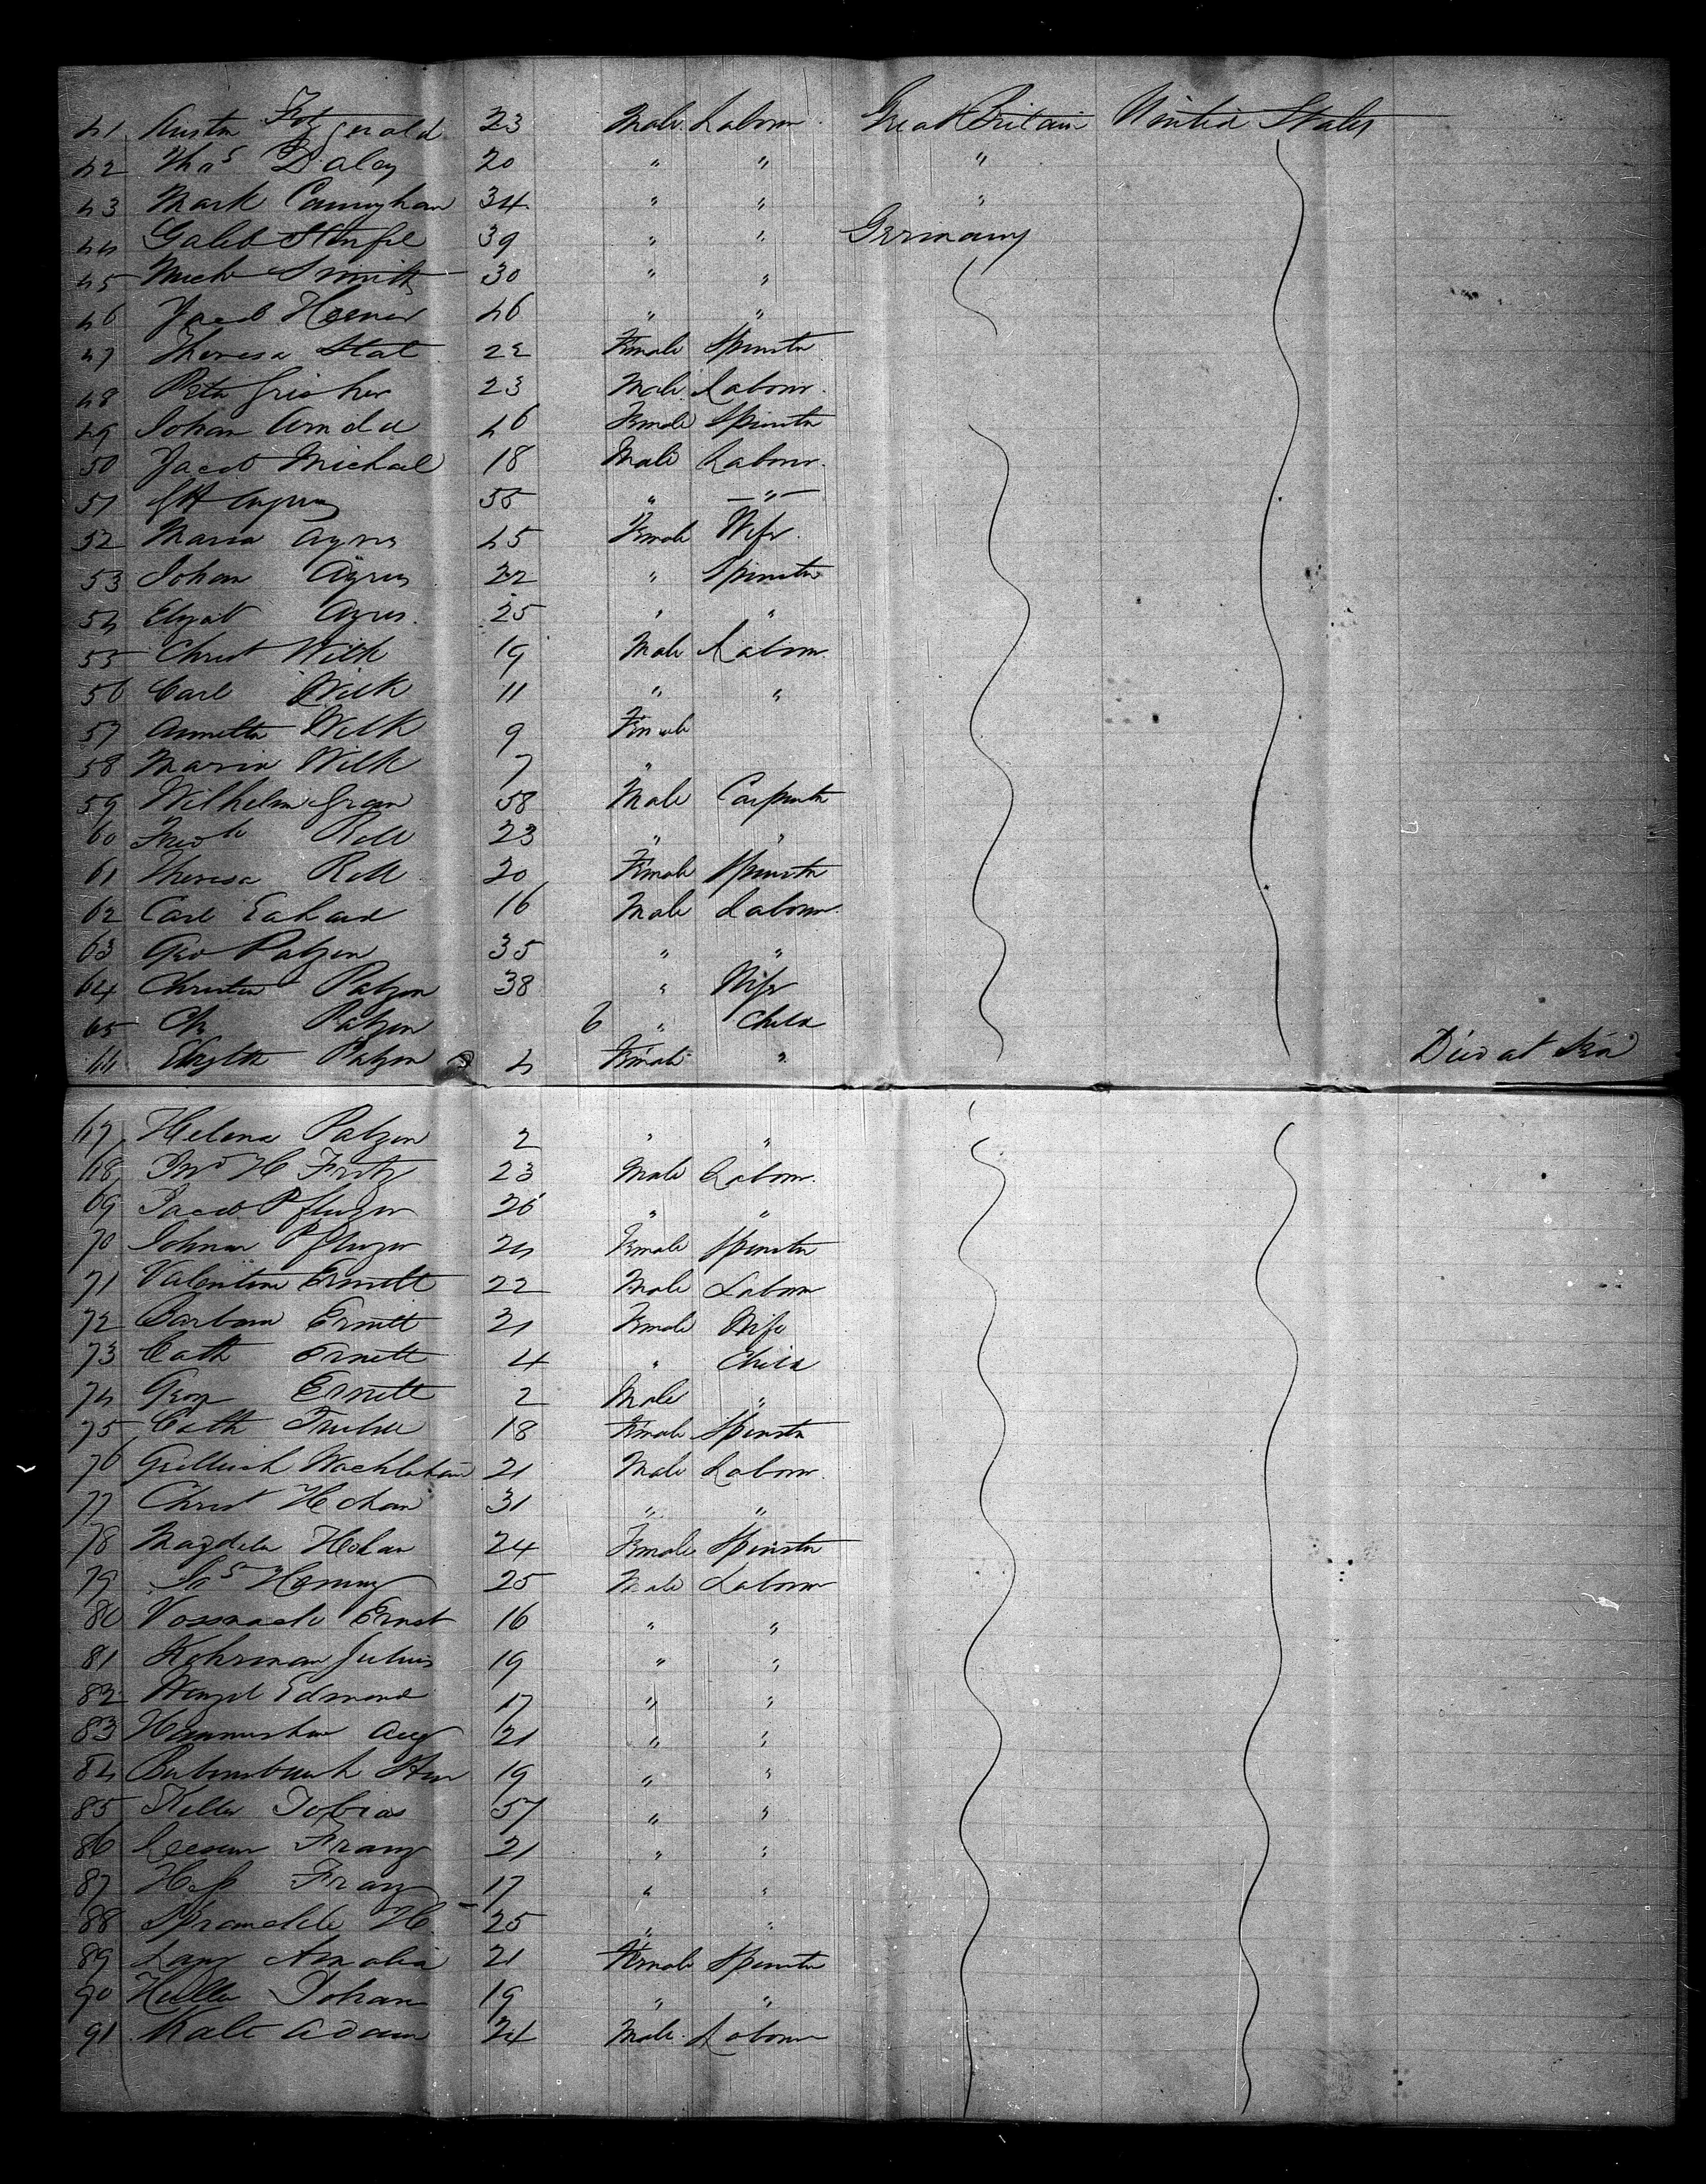 41 Austin Fitzgerald 23 Male Labourr Great Britain United States
42 Thos Daley 20 " " "
43 Mark Cunningham 34 " " "
44 Galeb 39 " " Germany
45 Mich Smith 30 " "
46 Jacob Hoener 46 " "
47 Theresa Stat 22 Female Spinster
48 Peter 23 Male Labour
49 Johan 46 Female Spinster
50 Jacob Michael 18 Male Labour
51 55 " "
52 Maria Agnes 45 Female Wife
53 Johan Agnes 22 " Spinster
54 Elizab Agnes 25 " "
55 Christ Wilk 19 Male Labour
56 Carl Wilk 11 " "
57 Annetta Wilk 9 Female
58 Maria Wilk 7 "
59 Wilhelm Gran 58 Male Carpenter
60 Roll 23 " "
61 Theresa Roll 20 Female Spinster
62 Carl Eahard 16 Male Labour
63 Geo Patzen 35 " "
64 Christin Patzen 38 " Wife
65 Ch Patzen 6 " Child
66 Elizbth Patzen 4 Female " Died at Sea
67 Helena Patzen 2 " "
68 Jno H Fritz 23 Male Labour
69 Jacob Pfluzer 26 " "
70 Johan Pfluzer 24 Female Spinster
71 Valentine Ernett 22 Male Labour
72 Barbara Ernett 21 Female Wife
73 Cath Ernett 4 " Child
74 Georg Ernett 2 Male "
75 Cath 18 Female Spinster
76 21 Male Labour
77 Christ Hohan 31 " "
78 Magdele Hohan 24 Female Spinster
79 Jas Henny 25 Male Labour
80 Vossnack Ernst 16 " "
81 Kohrman Julius 19 " "
82 Wenzel Edmond 17 " "
83 Aug 21 " "
84 19 " "
85 Keller Tobias 57 " "
86 Franz 21 " "
87 Hess Franz 17 " "
88 H 25 " "
89 Lang Amalia 21 Female Spinster
90 Huller Johan 19 " "
91 Kalt Adam 24 Male Labour